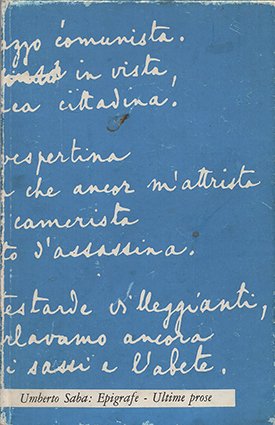 azzo comunista.
in vista,
ca cittadina.
vespertina
che ancor m'attrista
camerista
to d'assassina.
testarde villeggianti,
rlavamo ancora
i sassi e l'abete.
Umberto Saba: Epigrafe - Ultime prose